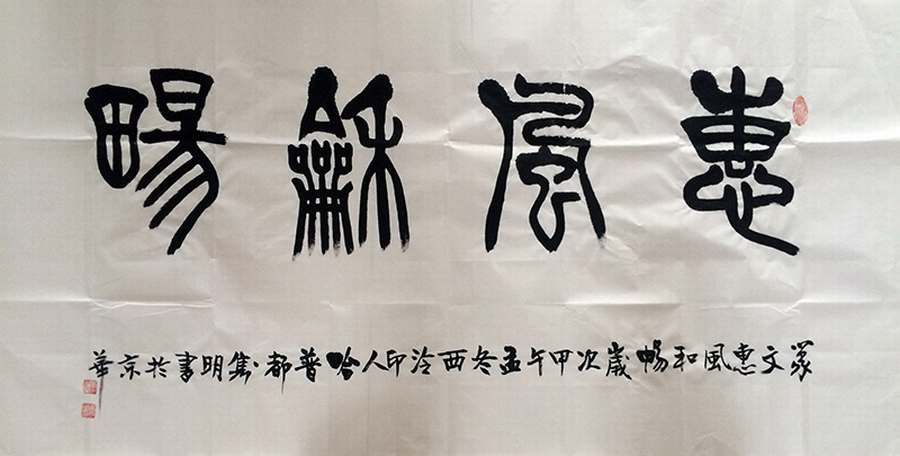 惠風龢畼
篆文惠風和暢歲次甲午孟冬西泠印人哈普都隽明書於京華